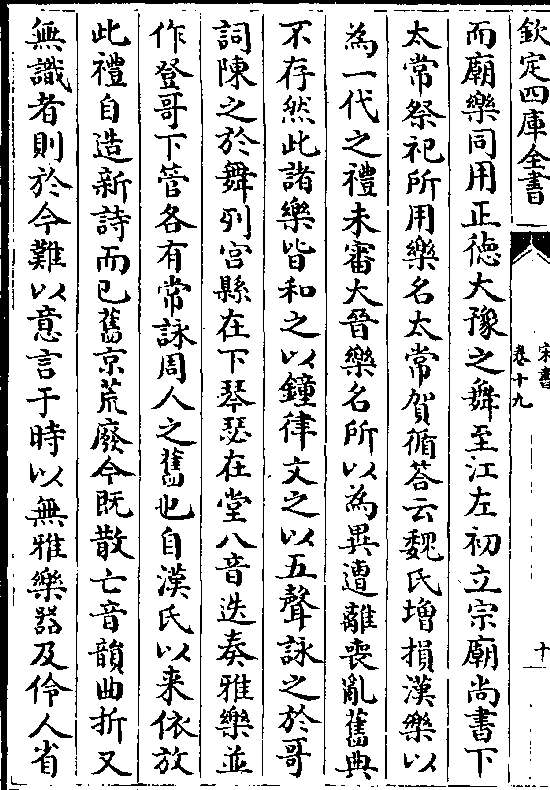 欽定四庫全書
宋書
卷十九
十
而廟樂同用正徳大豫之舞至江左初立宗廟尚書下
太常祭祀所用樂名太常賀循答云魏氏增損漢樂以
為一代之禮未審大晉樂名所以為異遭離喪亂舊典
不存然此諸樂皆和之以鐘律文之以五聲詠之於哥
詞陳之於舞列宫縣在下琴瑟在堂八音迭奏雅樂並
作登哥下管各有常詠周人之舊也自漢氏以来依放
此禮自造新詩而已舊京荒廢今既散亡音韻曲折又
無識者則於今難以意言于時以無雅樂器及伶人省